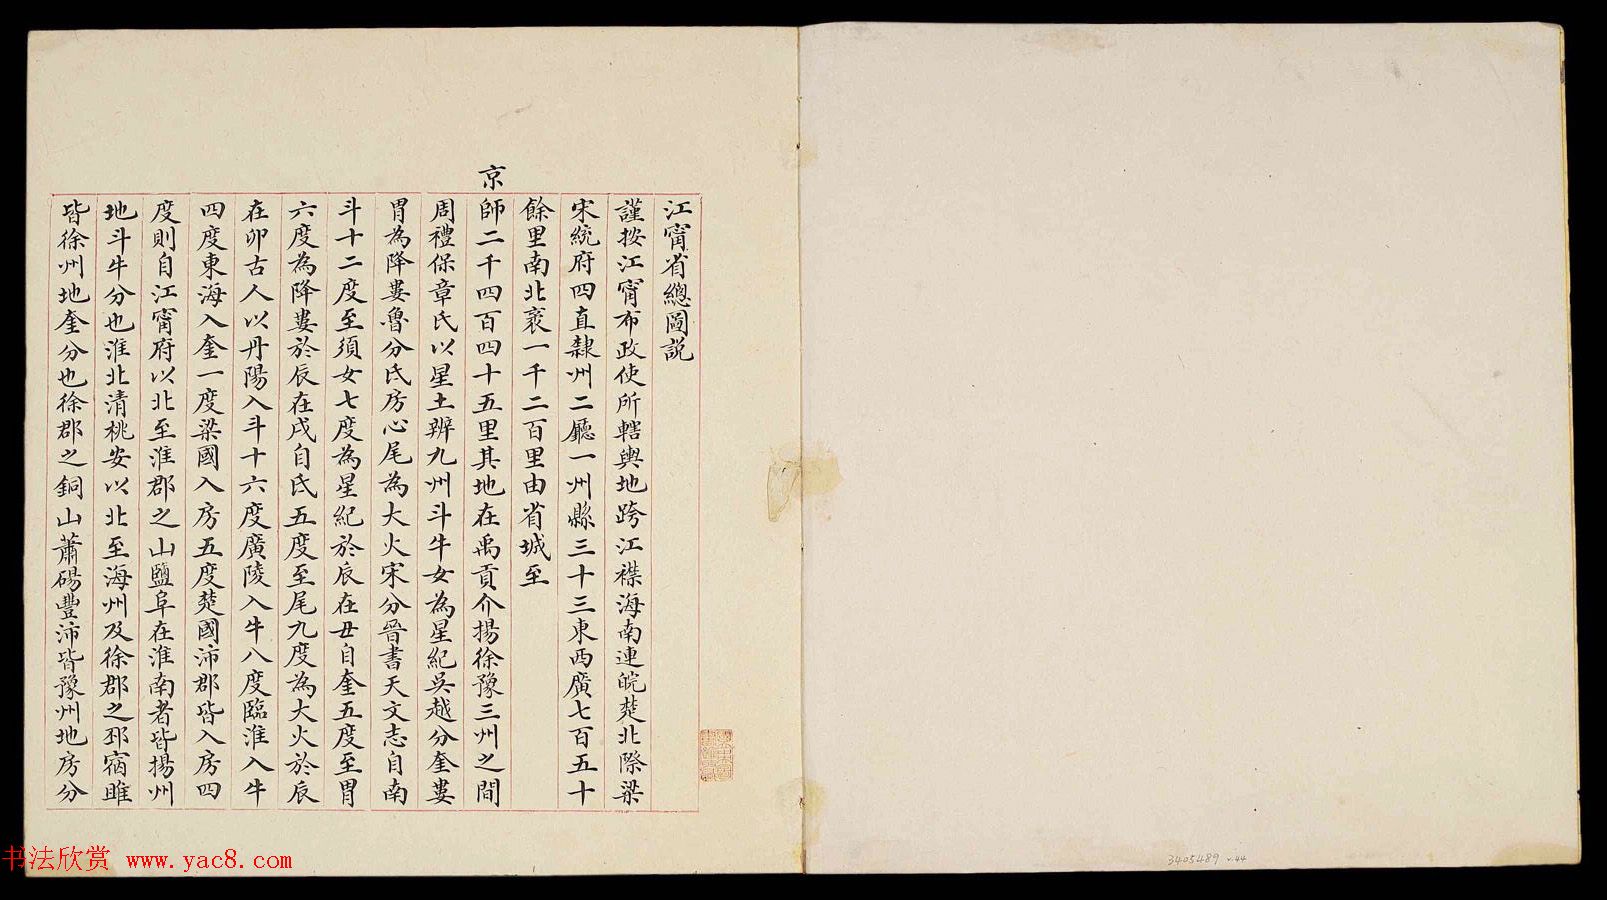 江甯省總圖説
謹按江甯布政使所轄輿地跨江襟海南連皖楚北際梁
宋統府四直隸州二廳一州縣三十三東西廣七百五十
餘里南北袤一千二百里由省城至
京
師二千四百四十五里其地在禹貢介揚徐豫三州之間
周禮保章氏以星土辨九州斗牛女為星紀吳越分奎婁
胃為降婁魯分氐房心尾為大火宋分晉書天文志自南
斗十二度至須女七度為星紀於辰在丑自奎五度至胃
六度為降婁於辰在戌自氐五度至尾九度為大火於辰
在卯古人以丹陽入斗十六度廣陵入牛八度臨淮入牛
四度東海入奎一度梁國入房五度楚國沛郡皆入房四
度則自江甯府以北至淮郡之山鹽阜在淮南者皆揚州
地斗牛分也淮北清桃安以北至海州及徐郡之邳宿睢
皆徐州地奎分也徐郡之銅山蕭碭豐沛皆豫州地房分
3405489 v.44
书法欣赏 www.yac8.com